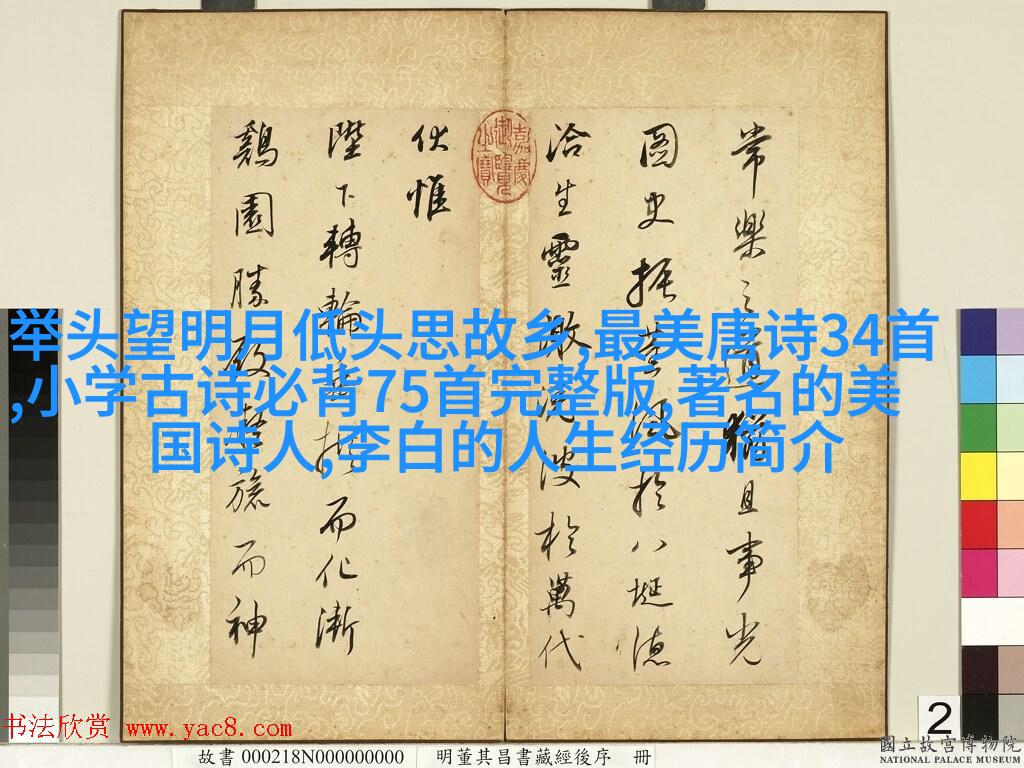 常樂之道猶且事光
圖史振英風於八埏德
洽生靈激波於萬代
伏惟
陛下轉輪垂拱而化漸
鷄園勝而神
嘉慶御覽之寶
举头望明月低头思故乡,最美唐诗34首
,小学古诗必背75首完整版,著名的美
国诗人,李白的人生经历简介
书法欣赏 www.yac8.com
2
故書 000218N000000000 明董其昌書藏經後序 冊
國立故宮博物院
NATIONAL PALACE MUSEUM